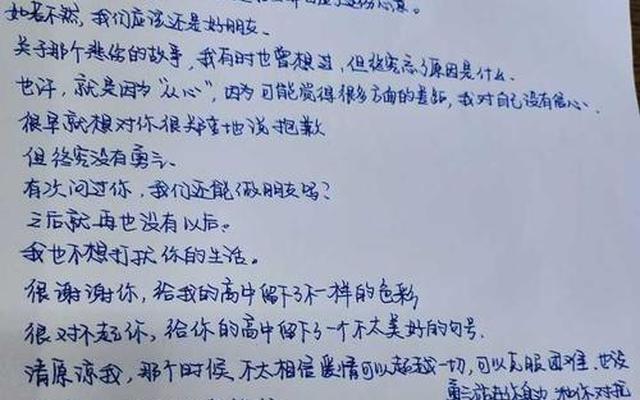 如若不然，我们应该还是好朋友、
关于那个悲伤的故事，我有时也曾想过，但终究忘了原因是什么、
也许，就是因为“从心”，因为可能觉得很多方面的差距，我对自己没有信心、
很早就想对你很郑重地说抱歉
但终究没有勇气、
有次问过你，我们还能做朋友吗？
之后就再也没有以后。
我也不想打扰你的生活。
很谢谢你，给我的高中留下了不一样的色彩
很对不起你，给你的高中留下了一个不太美好的句号、
请原谅我，那个时候不太相信爱情可以超越一切，可以克服困难、也没
勇气站在你身边和你对抗